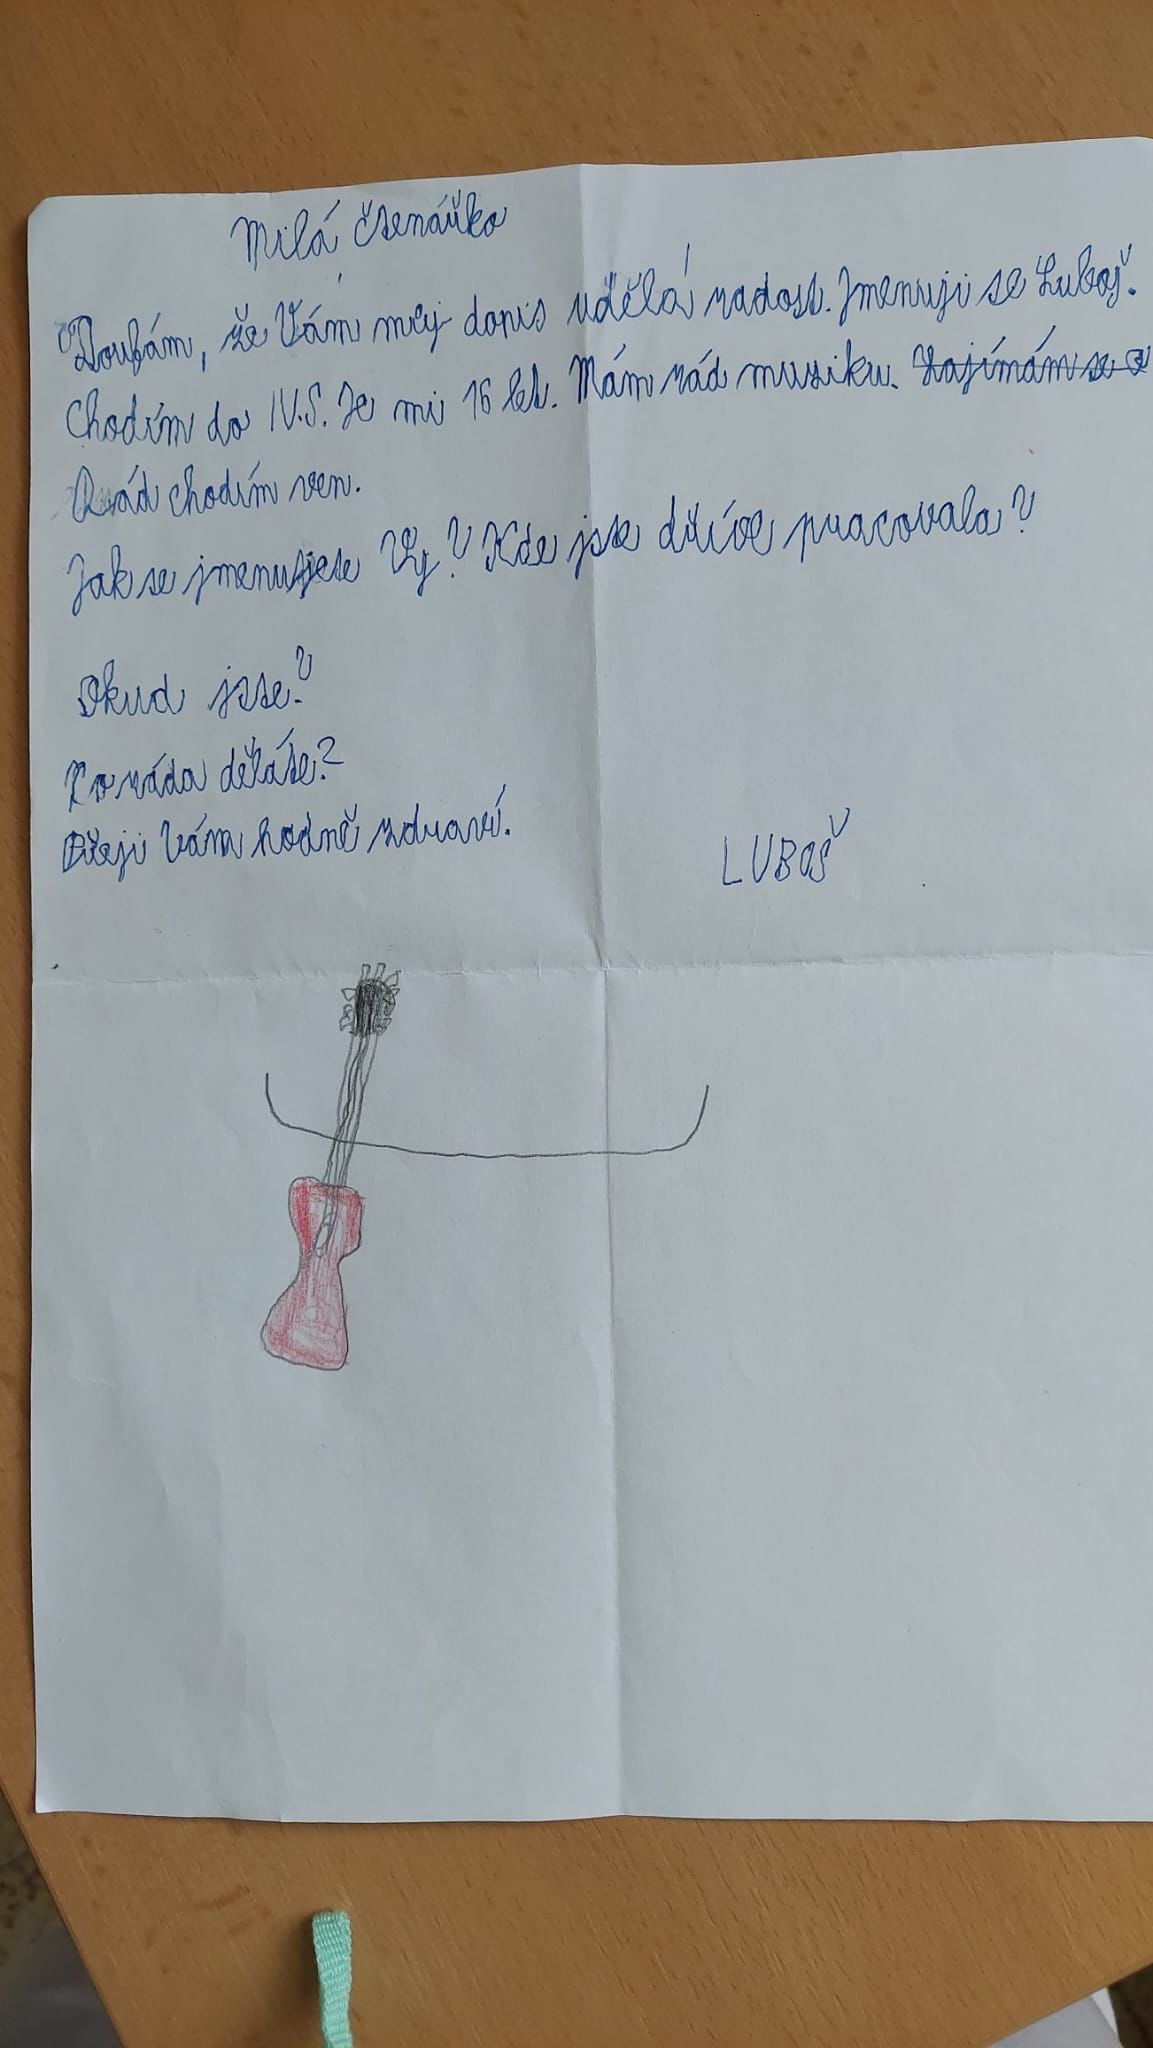 Milá čtenářko
Doufám, že Vám můj dopis udělá radost. Jmenuji se Luboš.
Chodím do IV.S. Je mi 16 let. Mám rád muziku. Zajímám se o
Rád chodím ven.
Jak se jmenujete Vy? Kde jste dříve pracovala?
Okud jste?
Co ráda děláte?
Přeji Vám hodně zdraví.
LUBOŠ